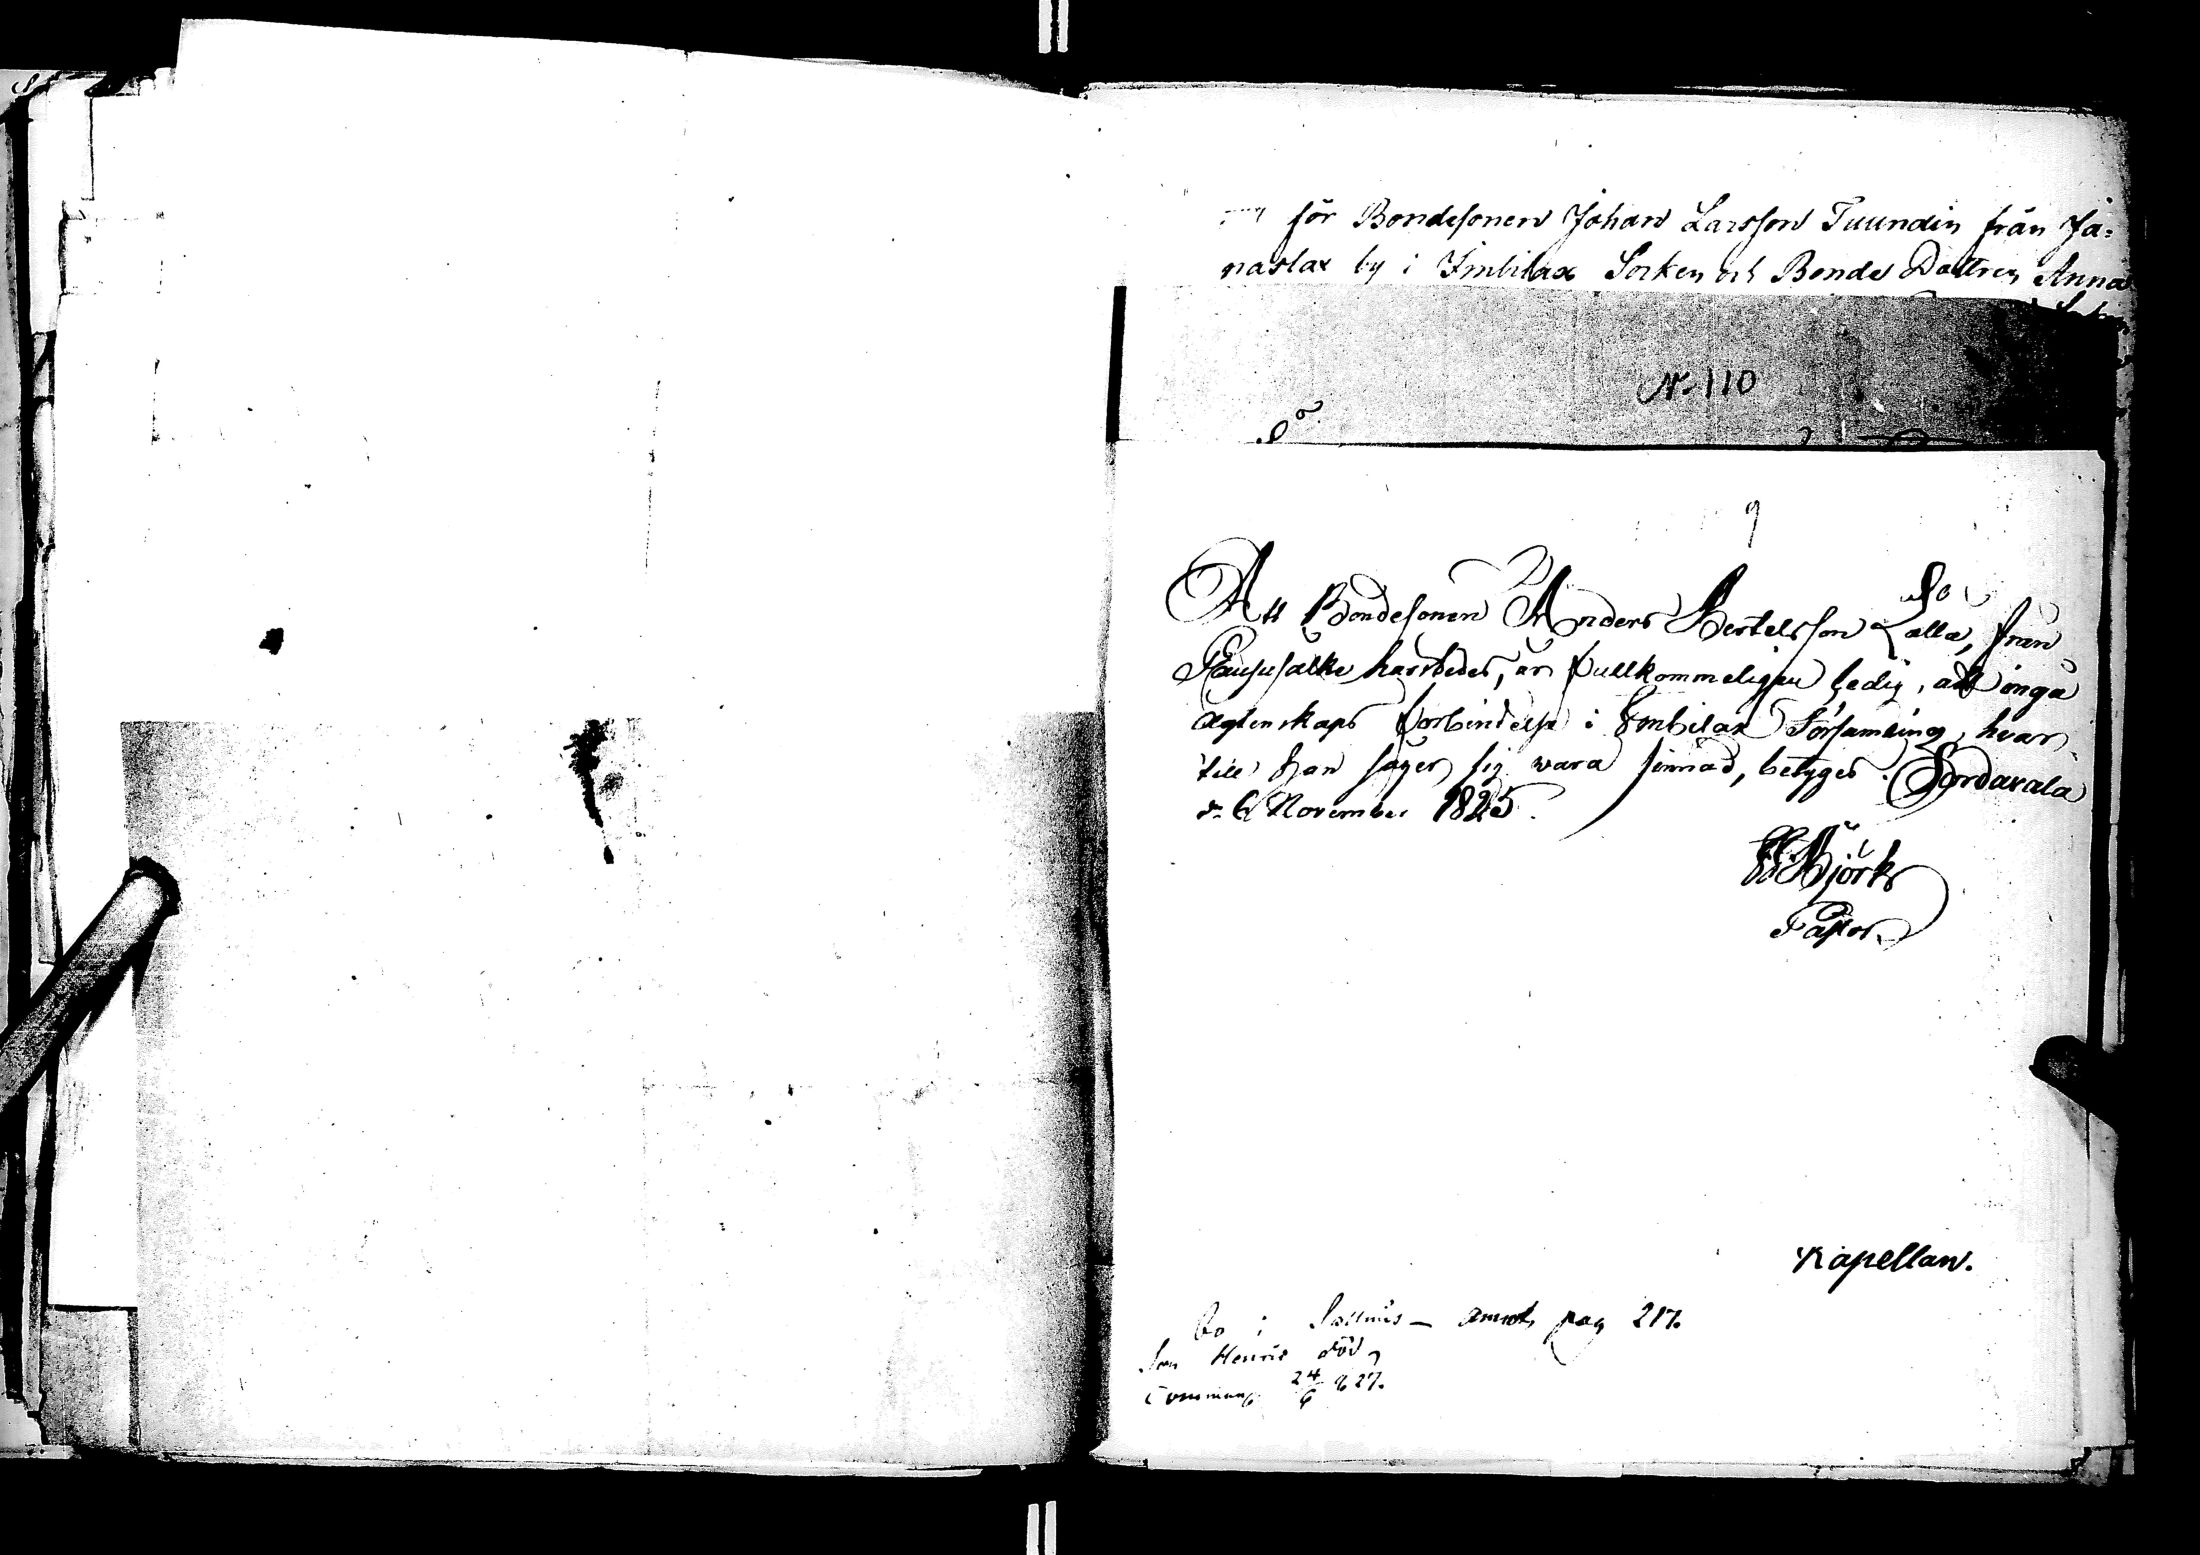 för Bondesonen Johan Larsson Tuundin från Jä=
naslax by i Imbilax Socken och Bonde Dottren Anna
N. 110
9
Att Bondesonen Anders Bertelsson Lallo, från
hastedes, är fullkomneligen ledig, att ingå
ägtenskaps förbindelse i Imbilax Församling, hvar
till han säger sig wara sinnad, betyges. Sordavala
d. 6 November 1825.
Björk
Pastor
Kapellan.
bo i annot. pag 217.
Son Henric död
24/6 827.